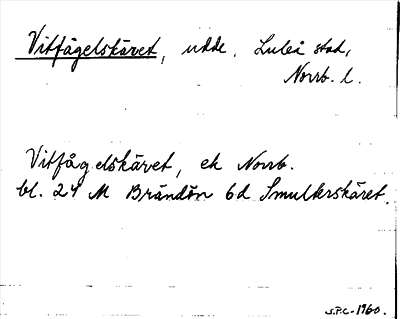 Vitfågelskäret, udde, Luleå stad,
Norrb. l.
Vitfågelskäret, ek Norrb.
bl. 24 M Brändön 6d Smulterskäret.
S.P.C. 1960.